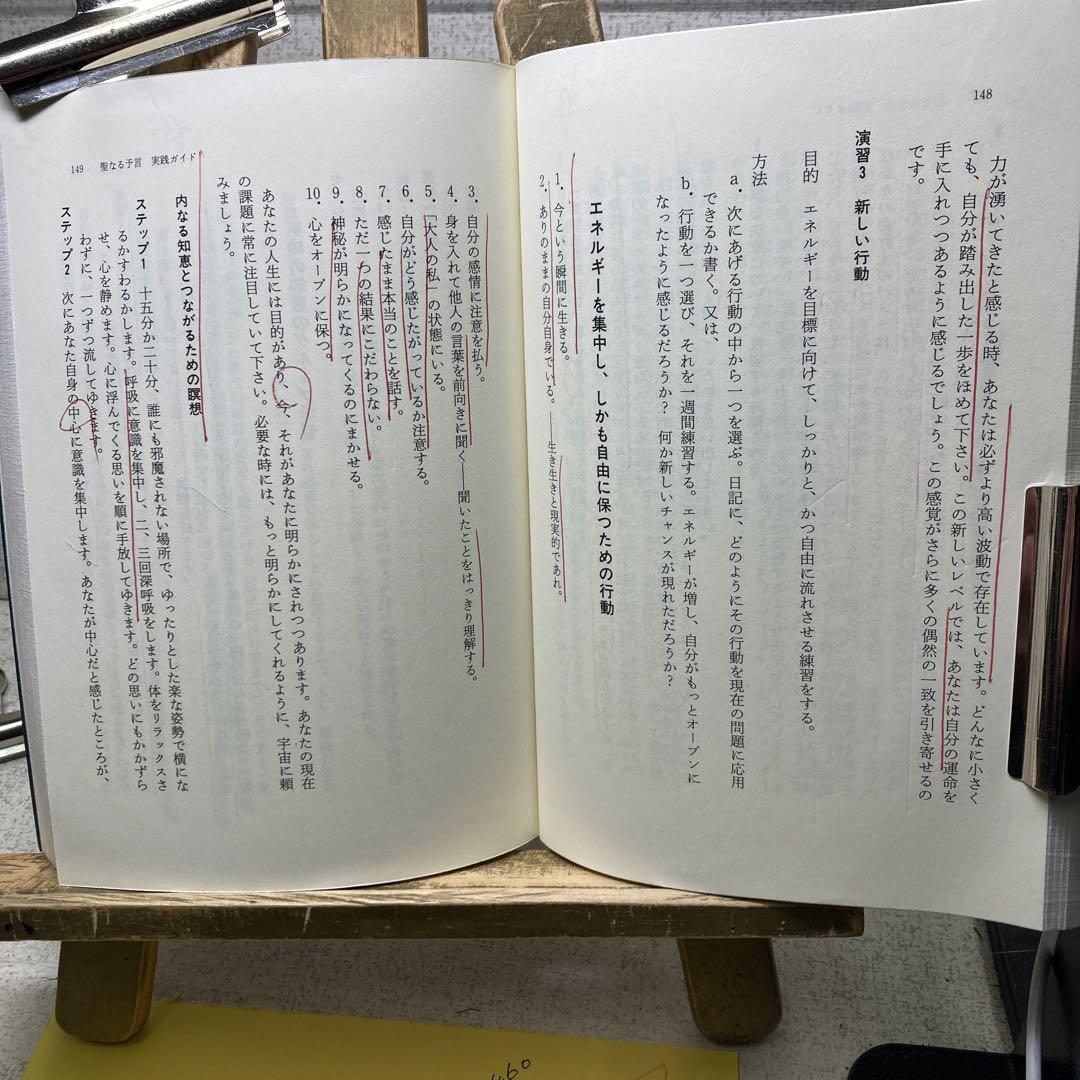 148
力が湧いてきたと感じる時、あなたは必ずより高い波動で存在しています。どんなに小さく
ても、自分が踏み出した一歩をほめて下さい。この新しいレベルでは、あなたは自分の運命を
手に入れつつあるように感じるでしょう。この感覚がさらに多くの偶然の一致を引き寄せるの
です。
演習3 新しい行動
目的 エネルギーを目標に向けて、しっかりと、かつ自由に流れさせる練習をする。
方法
a・次にあげる行動の中から一つを選ぶ。日記に、どのようにその行動を現在の問題に応用
できるか書く。又は、
b・行動を一つ選び、それを一週間練習する。エネルギーが増し、自分がもっとオープンに
なったように感じるだろうか? 何か新しいチャンスが現れただろうか?
エネルギーを集中し、しかも自由に保つための行動
1・今という瞬間に生きる。
2・ありのままの自分自身でいる。――生き生きと現実的であれ。
149 聖なる予言 実践ガイド
3・自分の感情に注意を払う。
4・身を入れて他人の言葉を前向きに聞く――聞いたことをはっきり理解する。
5・「大人の私」の状態にいる。
6・自分がどう感じたがっているか注意する。
7・感じたまま本当のことを話す。
8・ただ一つの結果にこだわらない。
9・神秘が明らかになってくるのにまかせる。
10・心をオープンに保つ。
あなたの人生には目的があり、今、それがあなたに明らかにされつつあります。あなたの現在
の課題に常に注目していて下さい。必要な時には、もっと明らかにしてくれるように、宇宙に頼
みましょう。
内なる知恵とつながるための瞑想
ステップ1 十五分か二十分、誰にも邪魔されない場所で、ゆったりとした楽な姿勢で横にな
るかすわるかします。呼吸に意識を集中し、二、三回深呼吸をします。体をリラックスさ
せ、心を静めます。心に浮んでくる思いを順に手放してゆきます。どの思いにもかかずら
わずに、一つずつ流してゆきます。
ステップ2 次にあなた自身の中心に意識を集中します。あなたが中心だと感じたところが、
460